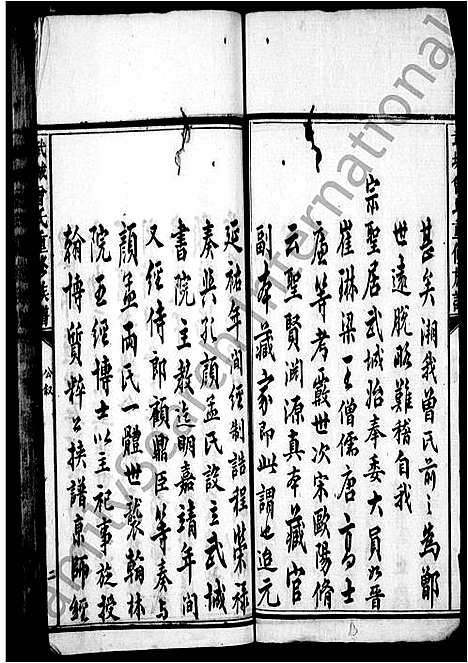 甚矣湘我曾氏前之為鄫
世遠脫略難稽自我
宗聖居武城始奉委大員如晉
崔琳梁王僧儒唐高士
廉等考嚴世次宋歐陽脩
云聖賢淵源真本藏官
副本藏家即此謂也迨元
延祐年間經制誥程榮祿
奏與孔顏孟氏設主武城
書院主教迄明嘉靖年間
又經侍郎顧鼎臣等奏與
顏孟兩氏一體世襲翰林
院五經博士以主祀事旋授
翰博質粹公挾譜東歸經
武城曾氏重修族譜
公叙
二
amilySearch International